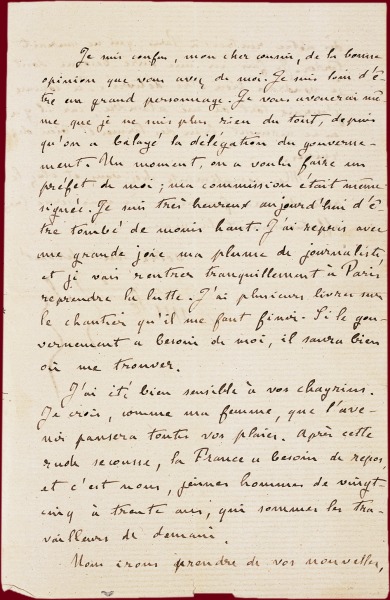 Je suis confus, mon cher cousin, de la bonne
opinion que vous avez de moi. Je suis loin d'ê-
tre un grand personnage. Je vous avouerai mê-
me que je ne suis plus rien du tout, depuis
qu'on a balayé la délégation du gouverne-
ment. Un moment, on a voulu faire un
préfet de moi; ma commission était même
signée. Je suis très heureux aujourd'hui d'ê-
tre tombé de moins haut. J'ai repris avec
une grande joie ma plume de journaliste,
et je vais rentrer tranquillement à Paris
reprendre la lutte. J'ai plusieurs livres sur
le chantier qu'il me faut finir. Si le gou-
vernement a besoin de moi, il saura bien
où me trouver.
J'ai été bien sensible à vos chagrins.
Je crois, comme ma femme, que l'ave-
nir pansera toutes vos plaies. Après cette
rude secousse, la France a besoin de repos,
et c'est nous, jeunes hommes de vingt-
cinq à trente ans, qui sommes les tra-
vailleurs de demain.
Nous irons prendre de vos nouvelles,